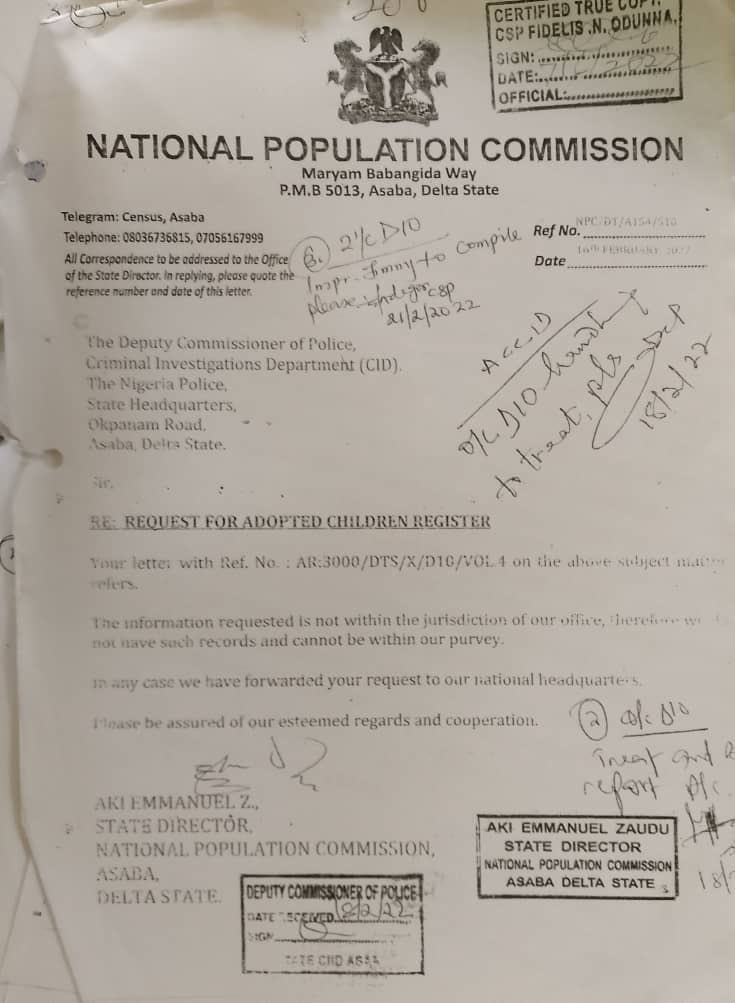 CERTIFIED TRUE COPY.
CSP FIDELIS .N. ODUNNA,
SIGN:
DATE: 2022
OFFICIAL:
NATIONAL POPULATION COMMISSION
Maryam Babangida Way
P.M.B 5013, Asaba, Delta State
Telegram: Census, Asaba
Telephone: 08036736815, 07056167999
All Correspondence to be addressed to the Office
of the State Director. In replying, please quote the
reference number and date of this letter.
Ref No. NPC/DT/A154/
Date 16th FEBRUARY, 2022
2i/c D10
to compile
please
CSP
21/2/2022
The Deputy Commissioner of Police,
Criminal Investigations Department (CID).
The Nigeria Police,
State Headquarters,
Okpanam Road,
Asaba, Delta State.
A C C.I.D
O/C D10
to treat, pls
DCP
18/2/22
Sir,
RE: REQUEST FOR ADOPTED CHILDREN REGISTER
Your letter with Ref. No. : AR:3000/DTS/X/D10/VOL.4 on the above subject matter
refers.
The information requested is not within the jurisdiction of our office, therefore we
not have such records and cannot be within our purvey.
In any case we have forwarded your request to our national headquarters.
Please be assured of our esteemed regards and cooperation.
2 O/C D10
Treat and
report
18/
AKI EMMANUEL Z.,
STATE DIRECTOR,
NATIONAL POPULATION COMMISSION,
ASABA,
DELTA STATE.
AKI EMMANUEL ZAUDU
STATE DIRECTOR
NATIONAL POPULATION COMMISSION
ASABA DELTA STATE
DEPUTY COMMISSIONER OF POLICE
DATE RECEIVED 18/2/22
SIGN
STATE CIID ASABA